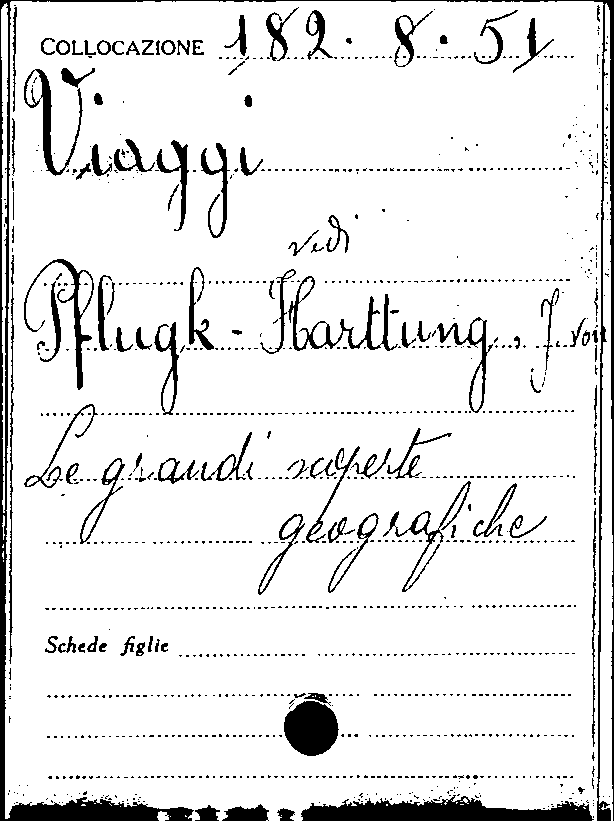 COLLOCAZIONE 182. 8. 51
Viaggi
vedi
Pflugk-Harttung, J. von
Le grandi scoperte
geografiche
Schede figlie